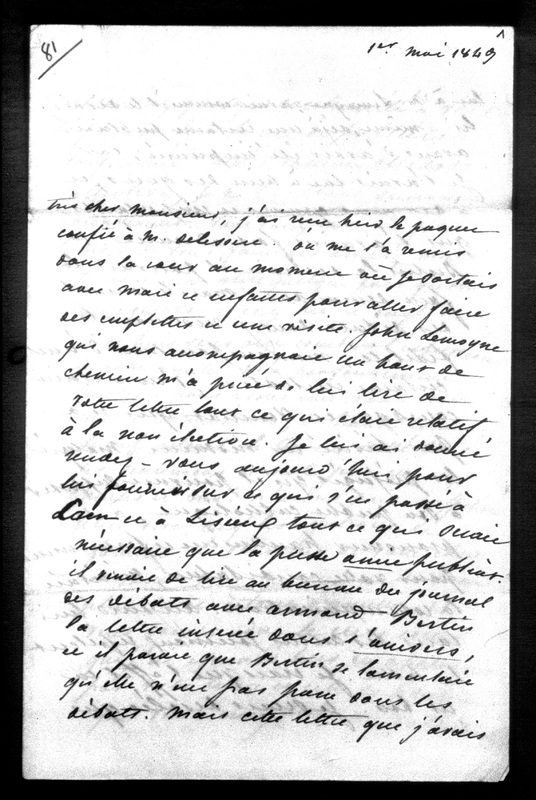 81
1er mai 1849
très cher monsieur, j'ai reçu hier le paquet
confié à m. delessert. on me l'a remis
dans la cour au moment où je sortais
avec mari et enfants pour aller faire
des emplettes et une visite. John Lemoyne
qui nous accompagnait un bout de
chemin m'a priée de lui lire de
votre lettre tout ce qui etait relatif
à la non élection. Je lui ai donné
rendez-vous aujourd'hui pour
lui fournir sur ce qui s'est passé à
Caen et à Lisieux tout ce qui serait
nécessaire que la presse amie publiât.
il venait de lire au bureau du journal
des débats avec armand Bertin
la lettre inserée dans l'univers,
et il parait que Bertin se lamentait
qu'elle n'eut pas paru dans les
débats. mais cette lettre que j'avais